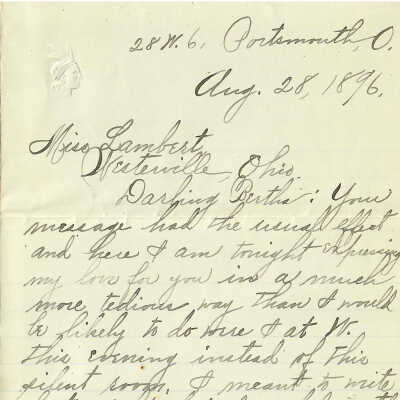 28 W. 6, Portsmouth, O.
Aug. 28, 1896.
Miss Lambert,
Westerville, Ohio.
Darling Bertha: Your
message had the usual effect
and here I am tonight expressing
my love for you in a much
more tedious way than I would
be likely to do were I at W.
this evening instead of this
silent room. I meant to write